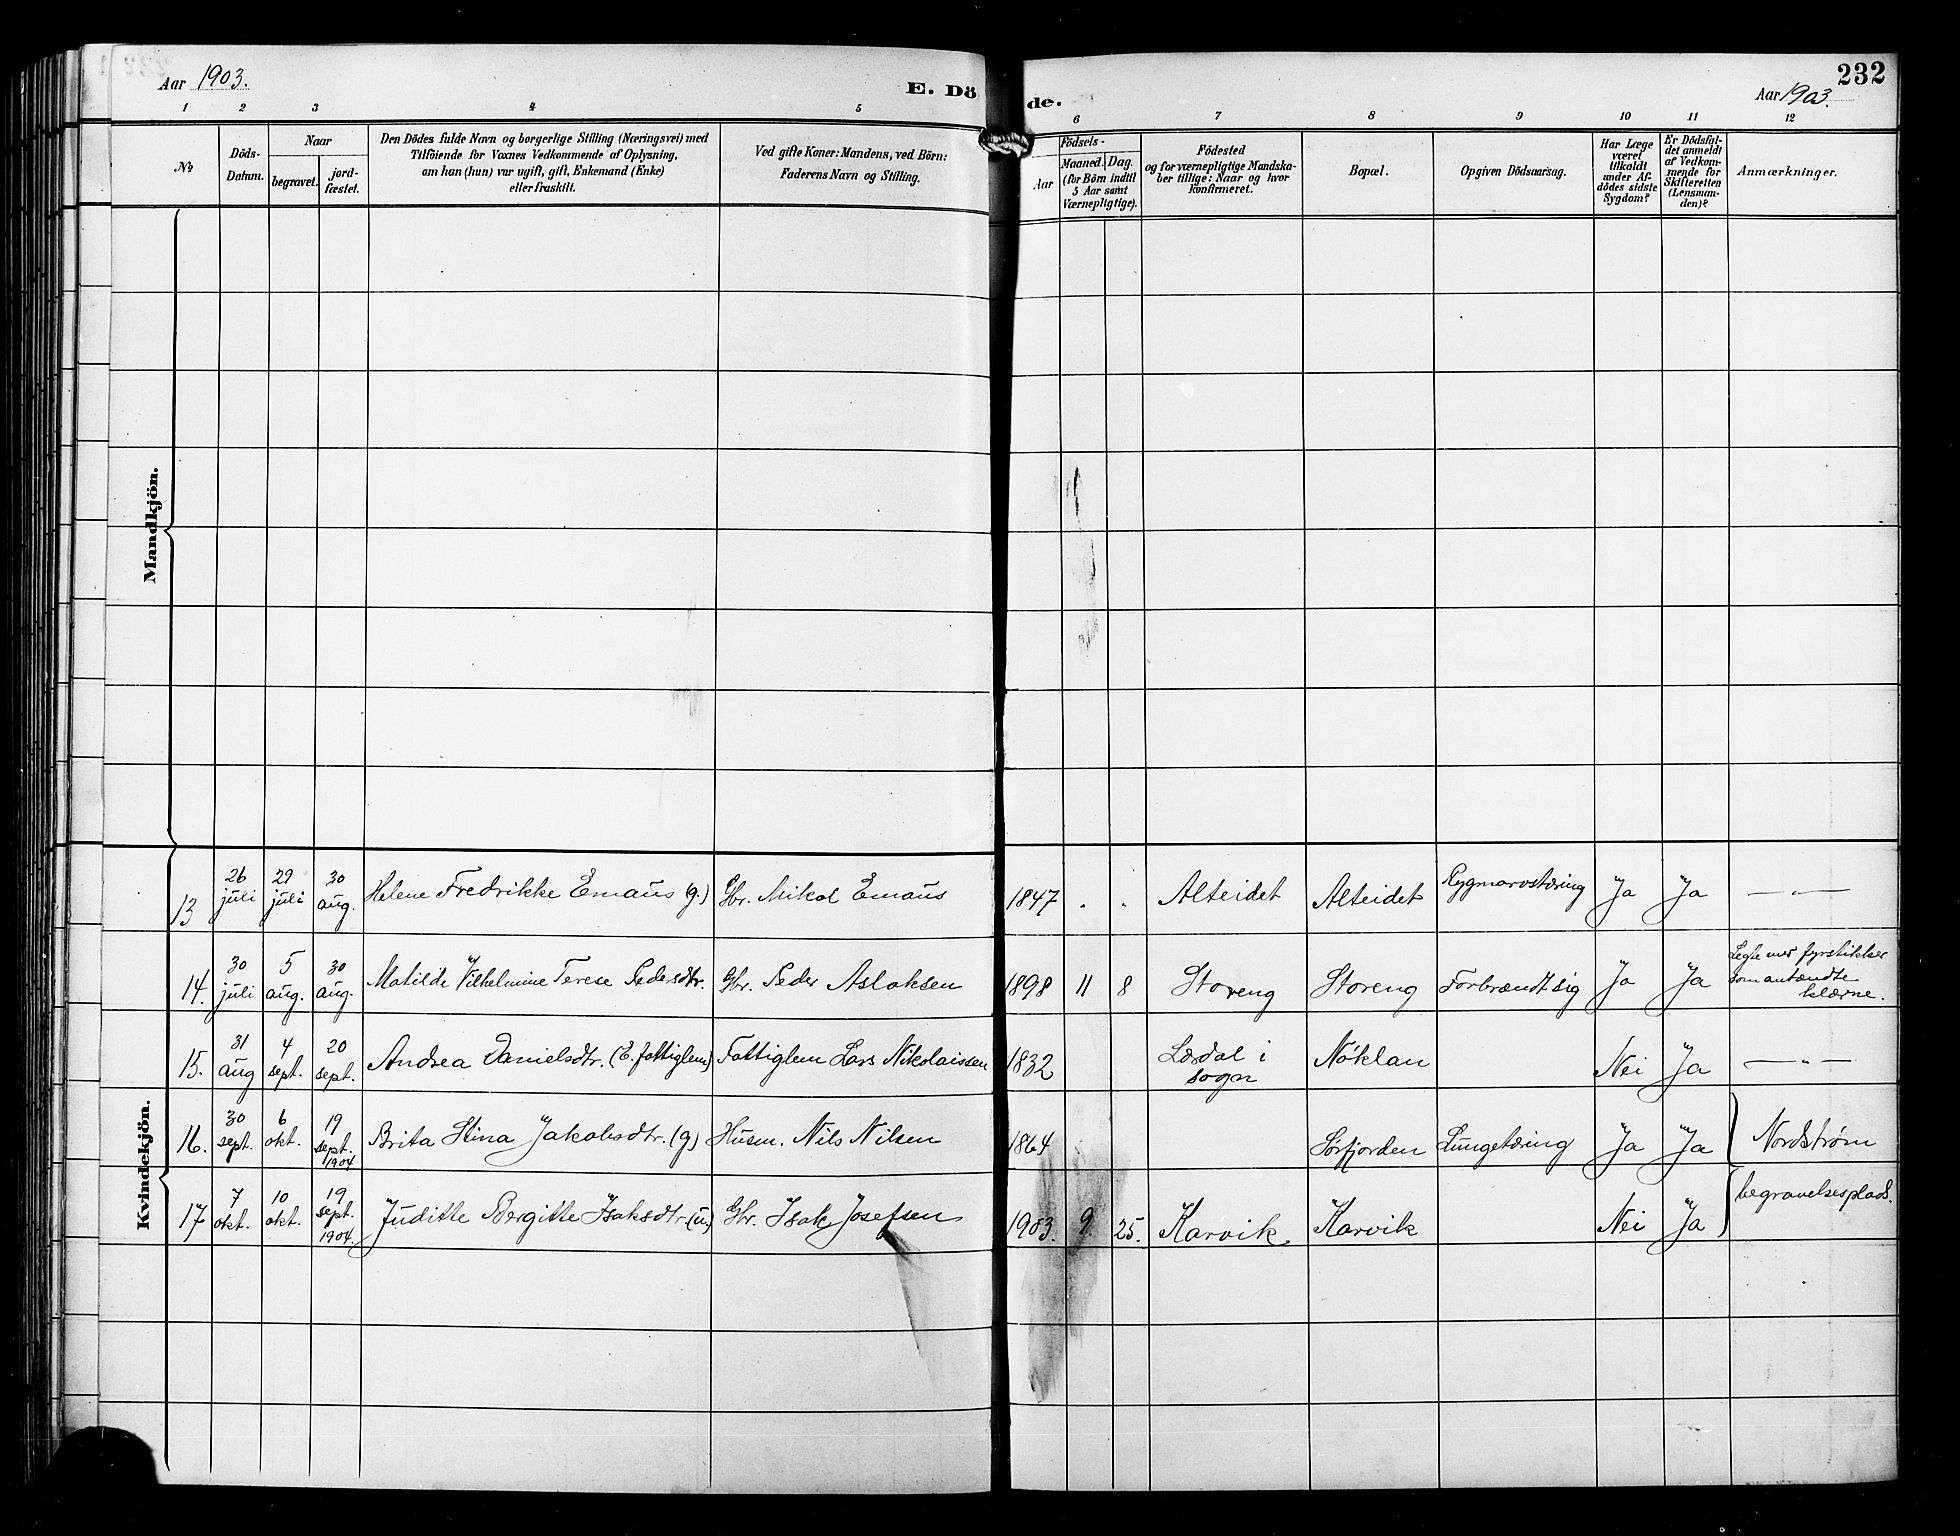 Aar 1903.
E. Dö
de.
Aar 1903.
232
1 2 3 4 5 6 7 8 9 10 11 12
No
Döds-
Datum.
Naar
begravet.
jord-
fæstet.
Den Dödes fulde Navn og borgerlige Stilling (Næringsvei) med
Tilföiende for Voxnes Vedkommende af Oplysning,
om han (hun) var ugift, gift, Enkemand (Enke)
eller fraskilt.
Ved gifte Koner: Mandens, ved Börn:
Faderens Navn og Stilling.
Födsels-
Aar
Maaned. Dag.
(for Börn indtil
5 Aar samt
Værnepligtige).
Födested
og for værnepligtige Mandska-
ber tillige: Naar og hvor
konfirmeret.
Bopæl.
Opgiven Dödsaarsag.
Har Læge
været
tilkaldt
under Af-
dödes sidste
Sygdom?
Er Dödsfal-
det anmeldt
af Vedkom-
mende for
Skifteretten
(Lensman-
den)?
Anmærkninger.
Mandkjön.
Kvindekjön.
13 26 juli 29 juli 30 aug. Helene Fredrikke Emaus (g.) Gbr. Mikal Emaus 1847 . . Alteidet Alteidet Rygmarvstæring Ja Ja — " —
14. 30 juli 5 aug. 30 aug. Matilde Vilhelmine Terese Pedersdtr. Gbr. Peder Aslaksen 1898 11 8 Storeng Storeng Forbrændt sig Ja Ja Legte med fyrstikker
som antændte
klærne.
15. 31 aug 4 sept. 20 sept. Andrea Danielsdtr. (E. fattiglem) Fattiglem Lars Nikolaissen 1832 Lærdal i
sogn Nöklan Nei Ja — " —
16. 30 sept. 6 okt. 19 sept. 1904 Brita Stina Jakobsdtr. (g) Husm. Nils Nilsen 1864 Sörfjorden Lungetæring Ja Ja Nordström
17 7 okt. 10 okt. 19 sept. 1904. Juditte Bergitte Isaksdtr (u) Gbr. Isak Josefsen 1903. 9. 25. Karvik Karvik Nei Ja begravelsesplads.